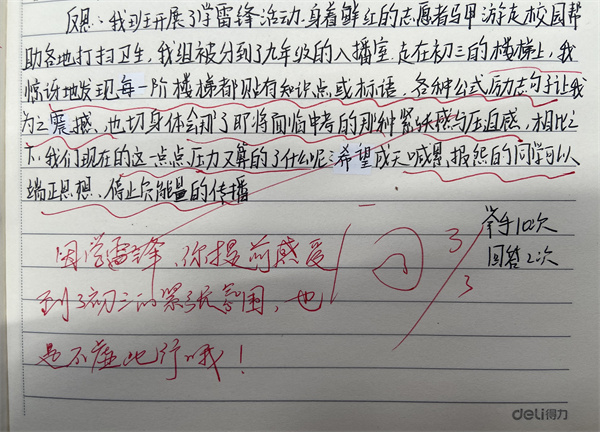 反思：我班开展了学雷锋活动.身着鲜红的志愿者马甲游走校园帮
助各地打扫卫生，我组被分到了九年级的入播室.走在初三的楼梯上，我
惊讶地发现每一阶楼梯都贴有知识点或标语，各种公式励志句子让我
为之震撼.也切身体会到了即将面临中考的那种紧张感与压迫感，相比之
下，我们现在的这一点点压力又算的了什么呢？希望成天喊累、报怨的同学可以
端正思想、停止负能量的传播
举手10次
回答2次
因学雷锋，你提前感受
到了初三的紧张氛围，也
是不虚此行哦！
3/3
deli得力